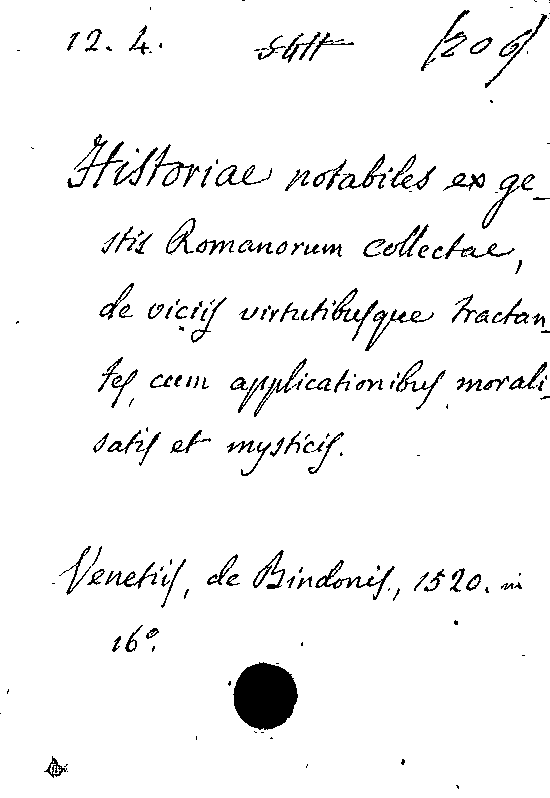 12. 4. (206)
Historiae notabiles ex ge-
stis Romanorum collectae,
de viciis virtutibusque tractan-
tes, cum applicationibus morali-
satis et mysticis.
Venetiis, de Bindonis, 1520. in
16°.